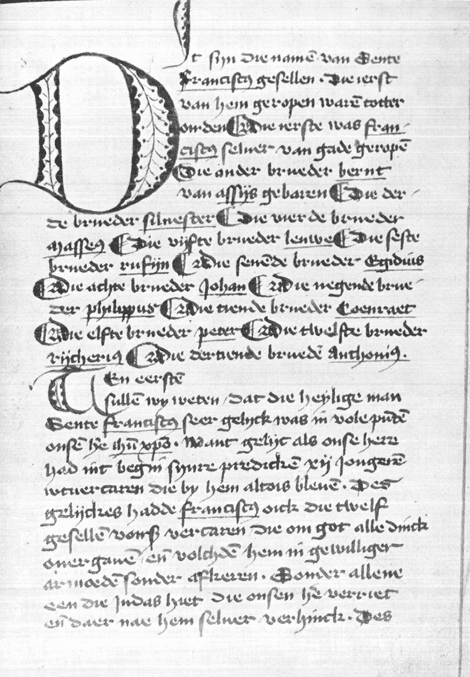 Dit syn die namē van Sente
Franciscus gesellen · Die ierst
van hem geropen warē totter
oirden Die ierste was fran-
ciscus selver van gade geropē
Die ander brueder bernt
van assijs gebaren Die der-
de brueder silvester Die vier de brueder
Masseus Die vijfte brueder leuwe Die seste
brueder rufijn Die sevēde brueder Egidius
Die achte brueder Johan Die negende brue-
der philippus Die tiende brueder Coenraet
Die elfte brueder peter Die twelfte brueder
rijcherius Die dertiende bruedē Anthonius.
Ten eerstē
sullen wy weten / dat die heylige man
Sente franciscus seer gelyck was in vole pūtē
onsē he ihū xpō · Want gelijc als onse herr
had int begin synre predickē xij Jongerē
wtvercaren die by hem altois blevē · Des
gelyckes hadde franciscus oick die twelf
gesellē vercaren die om got alle dinck
overgavē eñ volchdē hem in gewilliger
armoedē sonder afkeren · Sonder allene
een die Judas hiet die onsen he verriet
eñ daer nae hem selver verhinck · Des